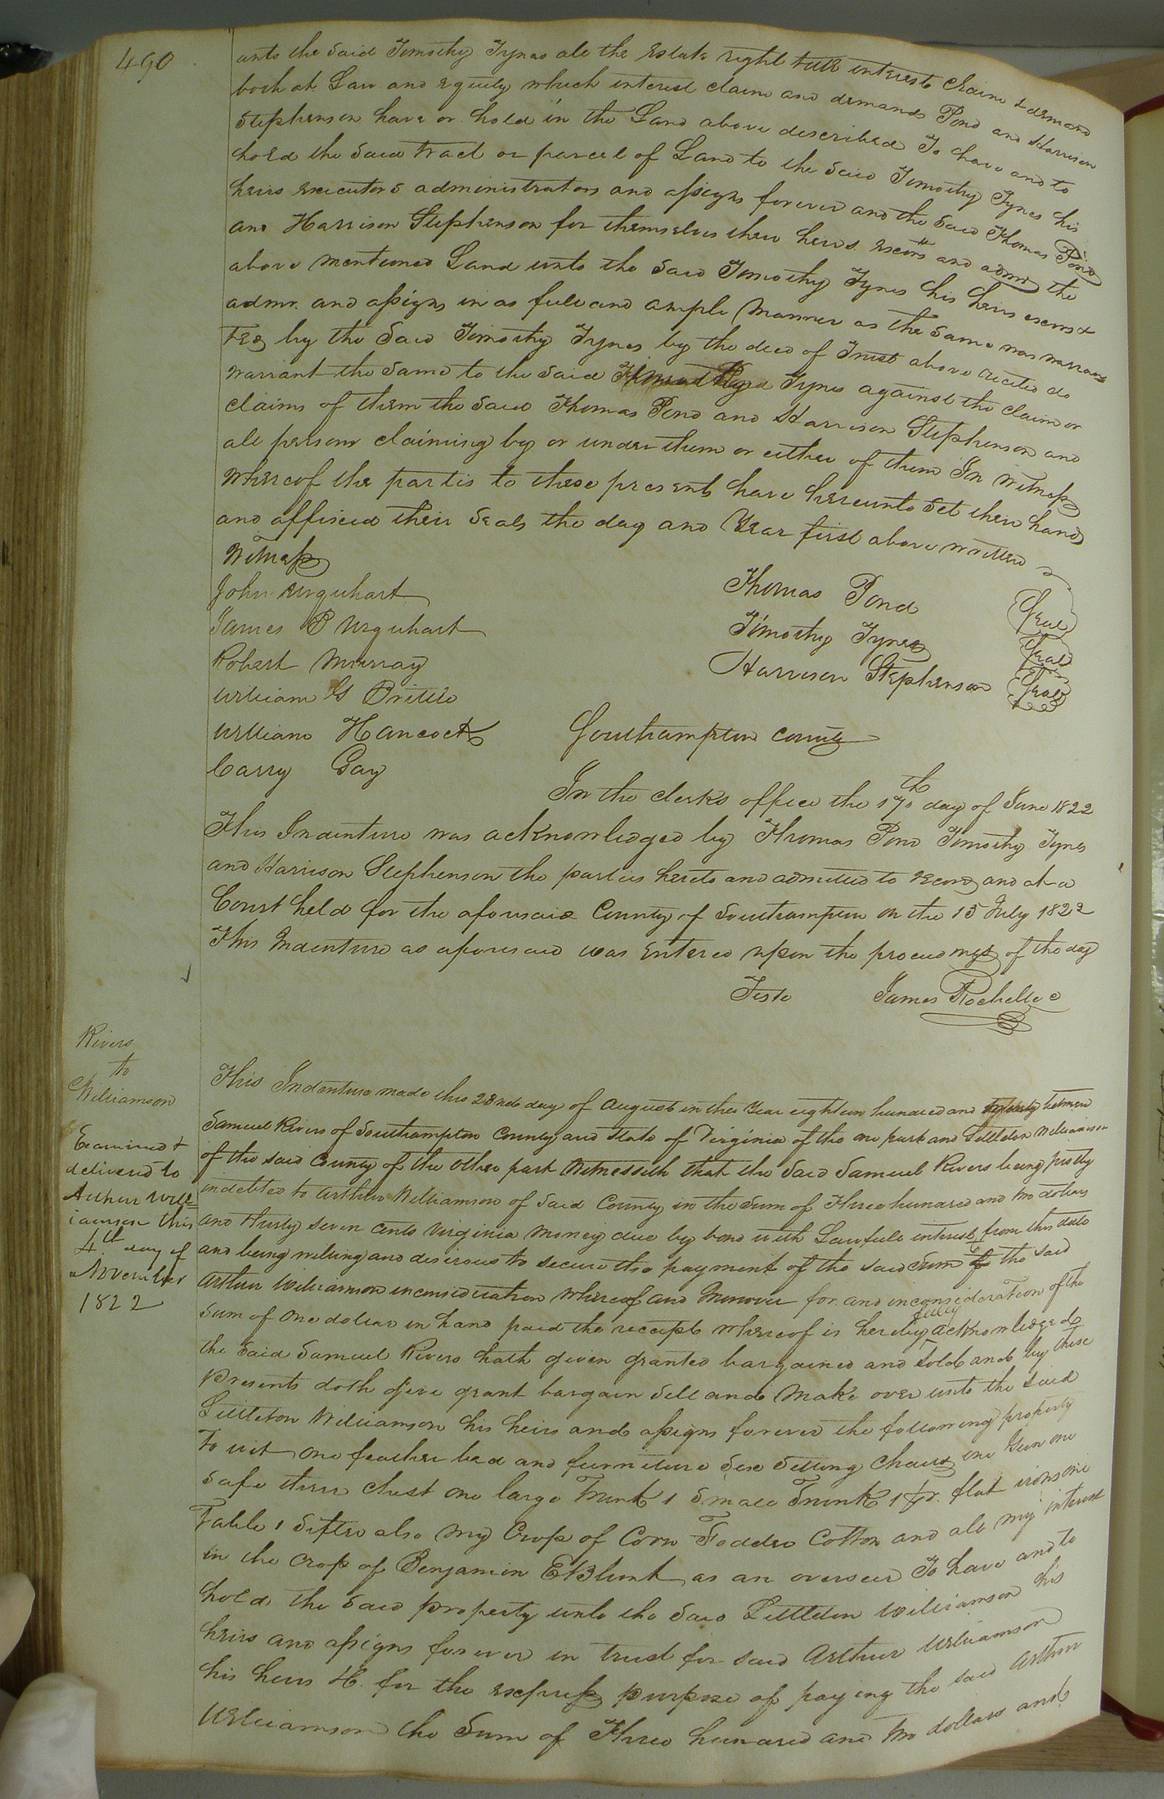 490
unto the said Timothy Tynes all the Estate right title interest claim & demand
both at Law and equity which interest claim and demands Pond and Harrison
Stephenson have or hold in the Land above described To have and to
hold the said tract or parcel of Land to the said Timothy Tynes his
heirs executors administrators and assigns forever and the said Thomas Pond
and Harrison Stephenson for themselves their heirs Execrs and admrs the
above mentioned Land unto the said Timothy Tynes his heirs execrs &
admr. and assigns in as full and ample manner as the same was warran
ted by the said Timothy Tynes by the deed of Trust above recited do
warrant the same to the said Tynes against the claim or
claims of them the said Thomas Pond and Harrison Stephenson and
all persons claiming by or under them or either of them In witness
whereof the partis to these presents have hereunto set their hands
and affixed their seals the day and Year first above written
Witness
John Urquhart
James B Urquhart
Robert Murray
William G Brittle
William Hancock
Carry Gay
Thomas Pond Seal
Timothy Tynes Seal
Harrison Stephenson Seal
Southampton County
In the clerks office the 17th day of June 1822
This Indenture was acknowledged by Thomas Pond Timothy Tynes
and Harrison Stephenson the parties hereto and admitted to record and at a
Court held for the aforesaid County of Southampton on the 15 July 1822
This Indenture as aforesaid was entered upon the proceedings of the day
Teste James Rochelle c
Rivers
to
Williamson
Examined &
delivered to
Arthur Will
iamson this
4th day of
November
1822
This Indenture made this 28nd day of August in the Year eighteen hundred and between
Samuel Rivers of Southampton County and State of Virginia of the one part and Littleton Williamson
of the said County of the other part Witnesseth that the said Samuel Rivers being justly
indebted to Arthur Williamson of said County in the sum of Three hundred and two dollars
and thirty seven cents Virginia money due by bond with Lawfull interest from this date
and being willing and desirous to secure the payment of the said sum to the said
Arthur Williamson in consideration whereof and Moreover for and in consideration of the
sum of one dollar in hand paid the receipt whereof is hereby fully acknowledged
the said Samuel Rivers hath given granted bargained and sold and by these
Presents doth give grant bargain sell and make over unto the said
Littleton Williamson his heirs and assigns forever the following property
To wit one feather bed and furniture six sitting chairs one Gun one
safe three chest one large Trunk 1 small Trunk 1 pr. flat irons one
Table 1 sifter also my Crop of Corn Fodder Cotton and all my interest
in the crop of Benjamin E Blunt as an overseer To have and to
hold the said property unto the said Littleton Williamson his
heirs and assigns forever in trust for said Arthur Williamson
his heirs &c. for the express purpose of paying the said Arthur
Williamson the sum of Three hundred and two dollars and